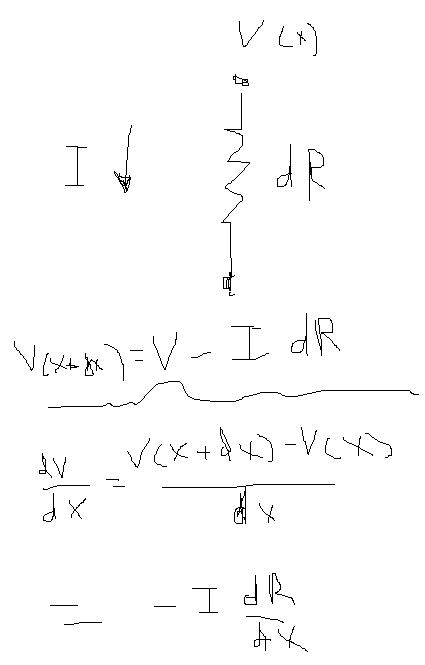 V(x)
I dR
V(x+dx) = V - I dR
dV/dx = V(x+dx) - V(x)/dx
= - I dR/dx